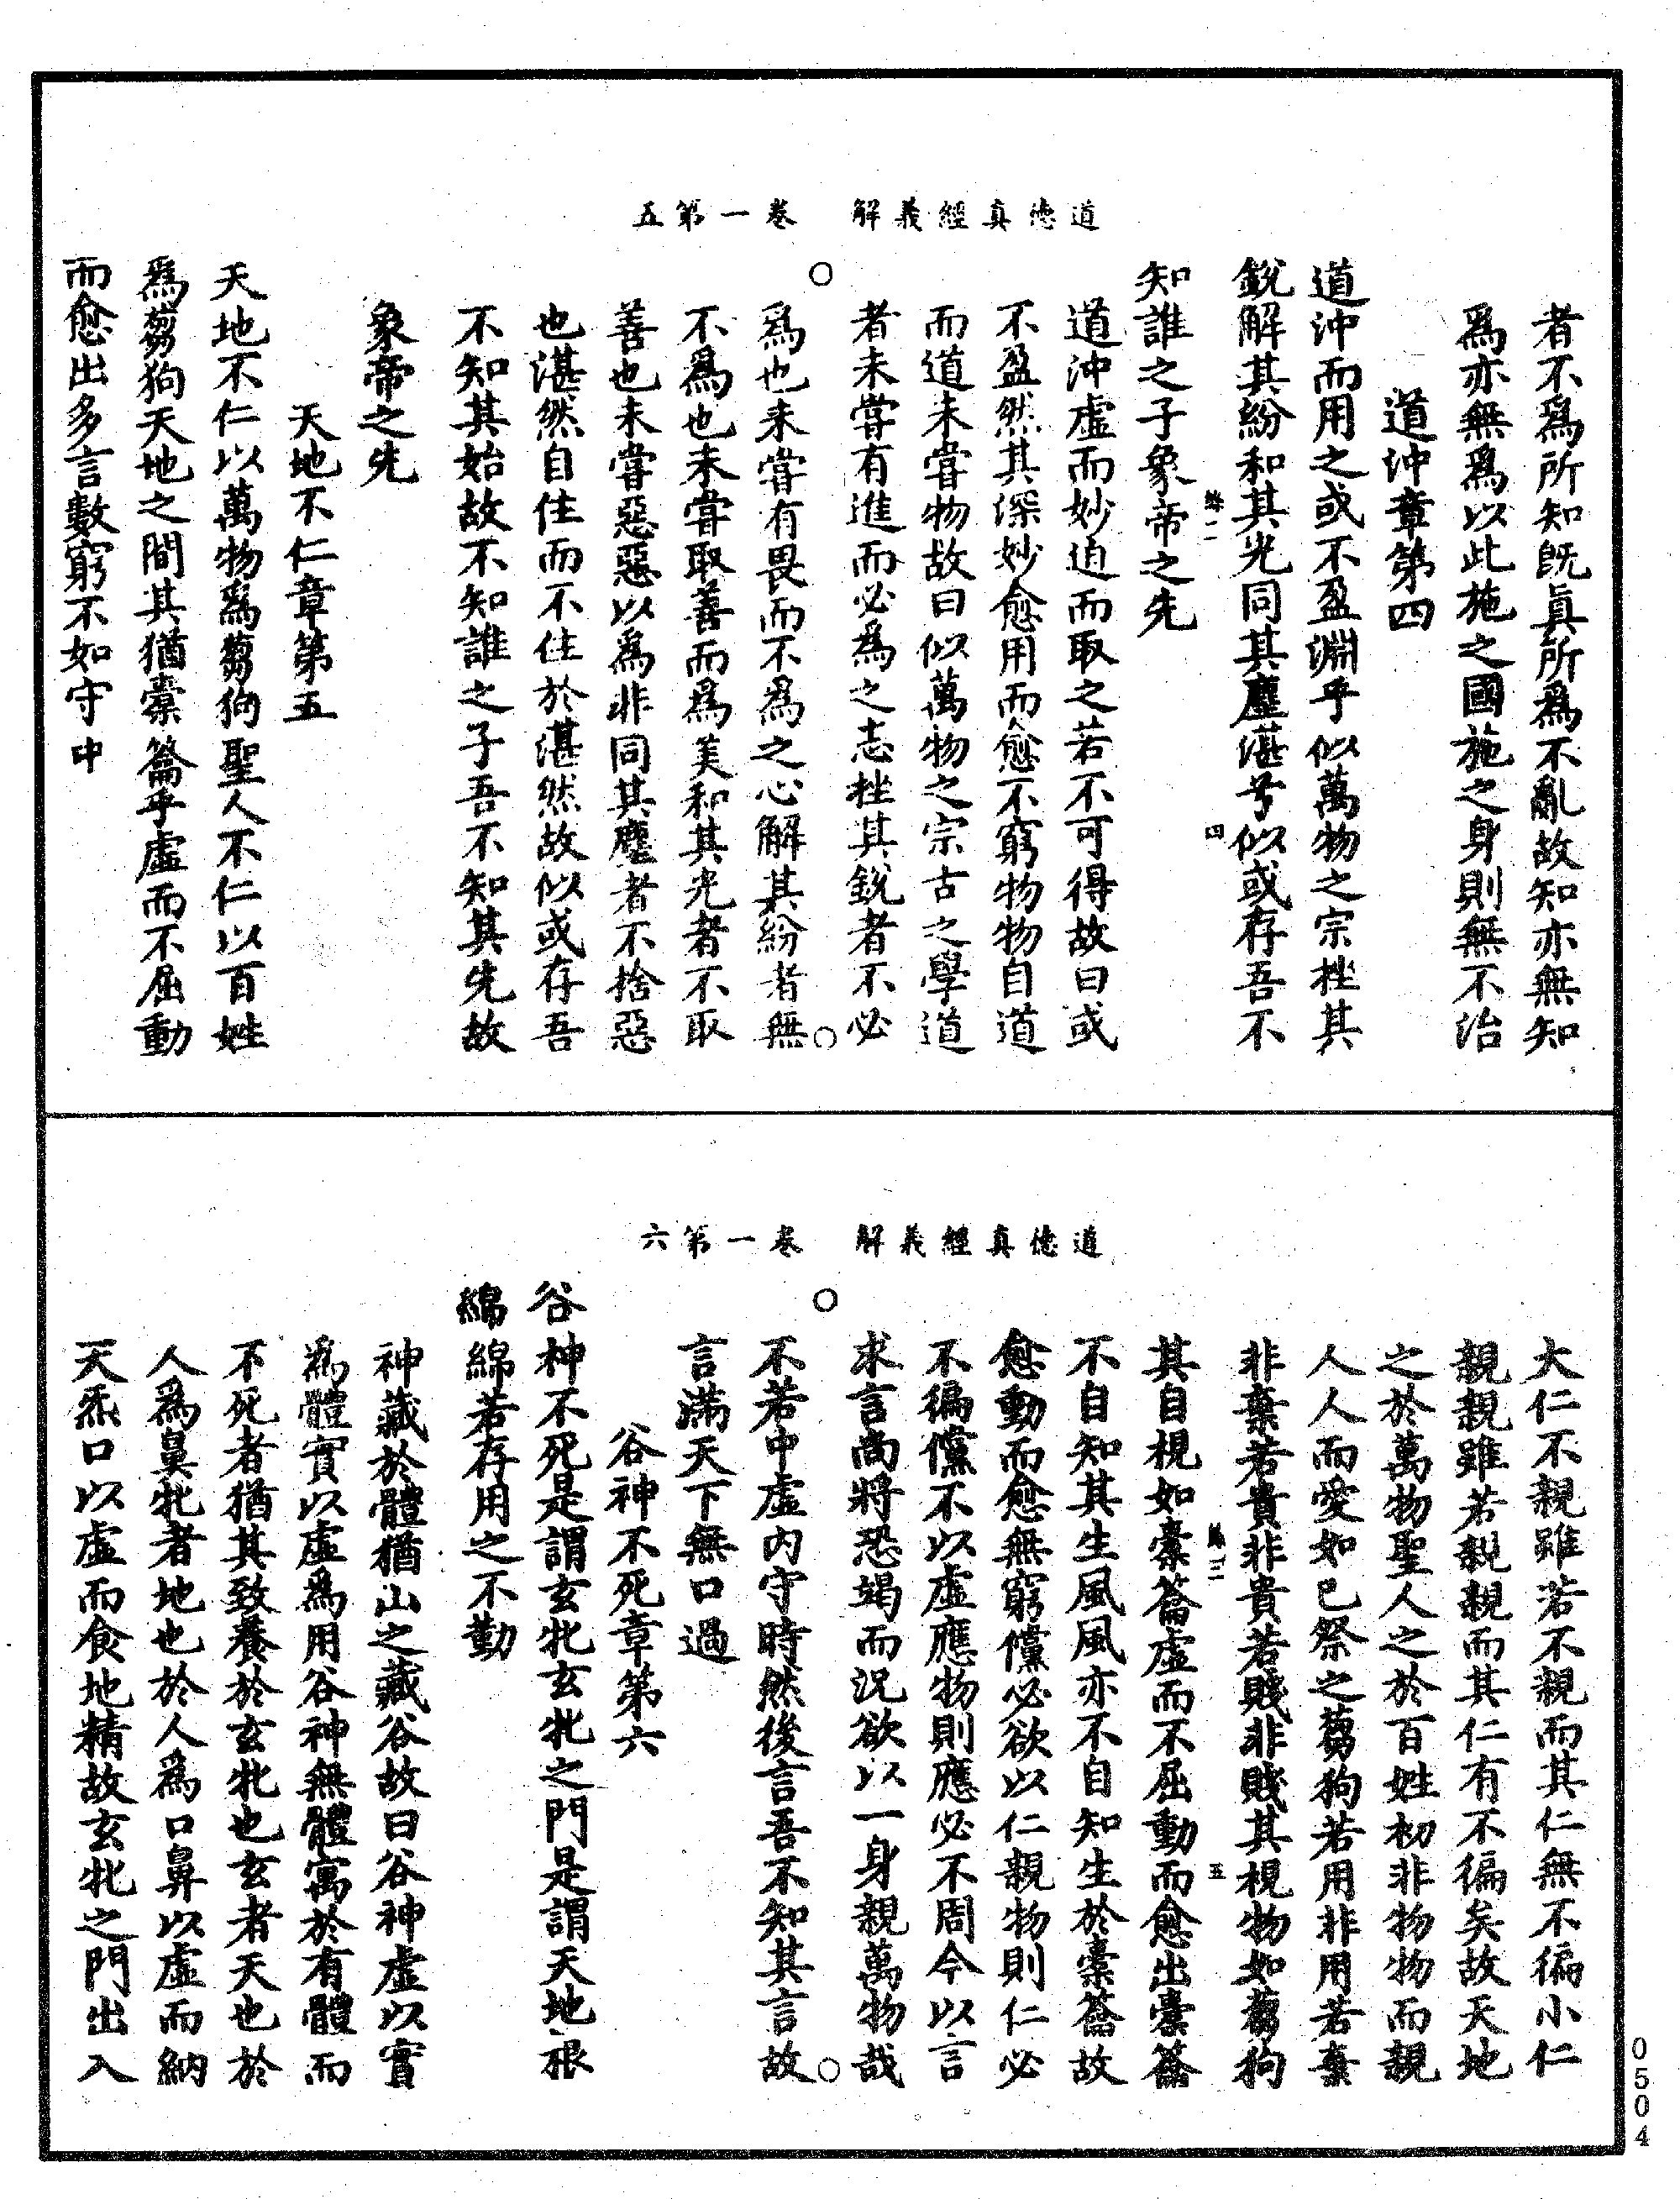 道德真經義解　卷一第五
者不爲所知既眞所爲不亂故知亦無知
爲亦無爲以此施之國施之身則無不治
道沖章第四
道沖而用之或不盈淵乎似萬物之宗挫其
銳解其紛和其光同其塵湛兮似或存吾不
二
四
知誰之子象帝之先
道沖虛而妙迫而取之若不可得故曰或
不盈然其深妙愈用而愈不窮物物自道
而道未甞物故曰似萬物之宗古之學道
者未甞有進而必爲之志挫其銳者不必
爲也未甞有畏而不爲之心解其紛者無
不爲也未甞取善而爲美和其光者不取
善也未甞惡惡以爲非同其塵者不捨惡
也湛然自住而不住於湛然故似或存吾
不知其始故不知誰之子吾不知其先故
象帝之先
天地不仁章第五
天地不仁以萬物爲芻狗聖人不仁以百姓
爲芻狗天地之間其猶橐籥乎虛而不屈動
而愈出多言數窮不如守中
道德真經義解　卷一第六
大仁不親雖若不親而其仁無不徧小仁
親親雖若親親而其仁有不徧矣故天地
之於萬物聖人之於百姓初非物物而親
人人而愛如已祭之芻狗若用非用若棄
非棄若貴非貴若賤非賤其視物如芻狗
三
五
其自視如橐籥虛而不屈動而愈出橐籥
不自知其生風風亦不自知生於橐籥故
愈動而愈無窮儻必欲以仁親物則仁必
不徧儻不以虛應物則應必不周今以言
求言尚將恐竭而況欲以一身親萬物哉
不若中虛内守時然後言吾不知其言故
言滿天下無口過
谷神不死章第六
谷神不死是謂玄牝玄牝之門是謂天地根
綿綿若存用之不勤
神藏於體猶山之藏谷故曰谷神虛以實
爲體實以虛爲用谷神無體寓於有體而
不死者猶其致養於玄牝也玄者天也於
人爲鼻牝者地也於人爲口鼻以虛而納
天炁口以虛而食地精故玄牝之門出入
0504